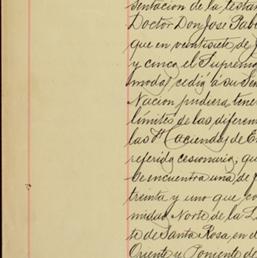 sentacion de la testa
Doctor Don José Pab
que en veintisiete de J
y cinco, el Supremo
modo), cedía á su Se
Nacion pudiera tene
límites de las diferen
las Haciendas de E
referida cesionaria, qu
se encuentra una de f
treinta y uno que co
midad Norte de la L
to de Santa Rosa, en d
Oriente y Poniente de